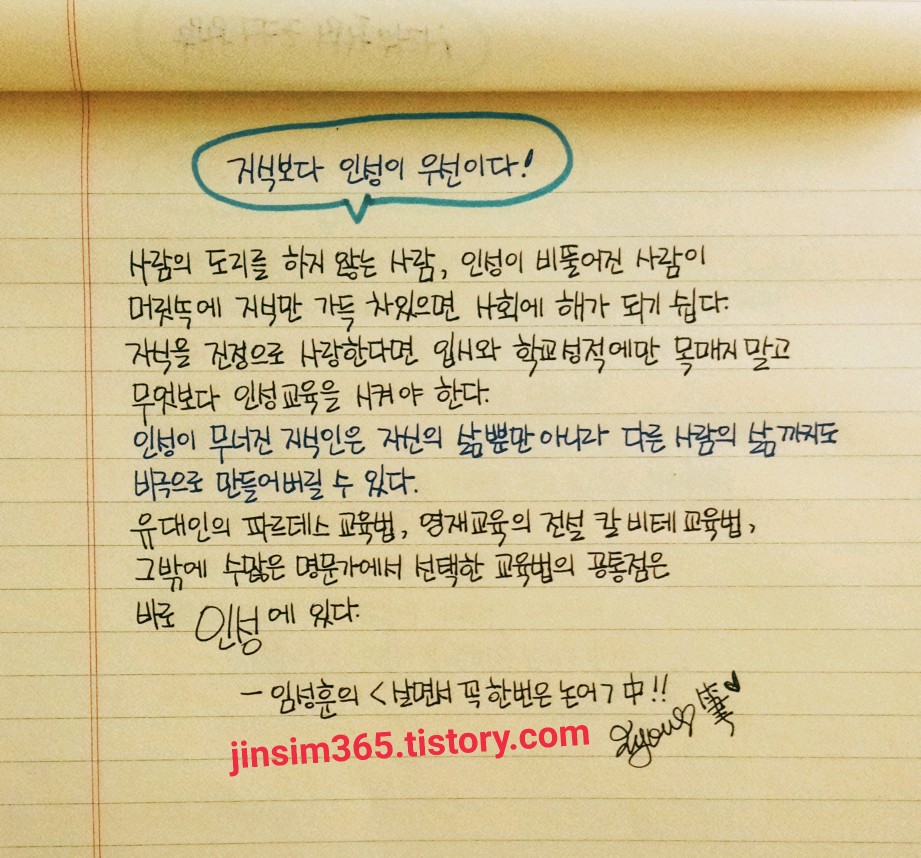 지식보다 인성이 우선이다!
사람의 도리를 하지 않는 사람, 인성이 비뚤어진 사람이
머릿속에 지식만 가득 차있으면 사회에 해가 되기 쉽다.
자식을 진정으로 사랑한다면 입시와 학교성적에만 목매지 말고
무엇보다 인성교육을 시켜야 한다.
인성이 무너진 지식인은 자신의 삶뿐만 아니라 다른 사람의 삶까지도
비극으로 만들어버릴 수 있다.
유대인의 파르데스 교육법, 영재교육의 전설 칼 비테 교육법,
그밖에 수많은 명문가에서 선택한 교육법의 공통점은
바로 인성에 있다.
- 임성훈의 <살면서 꼭 한번은 논어> 中!!
jinsim365.tistory.com